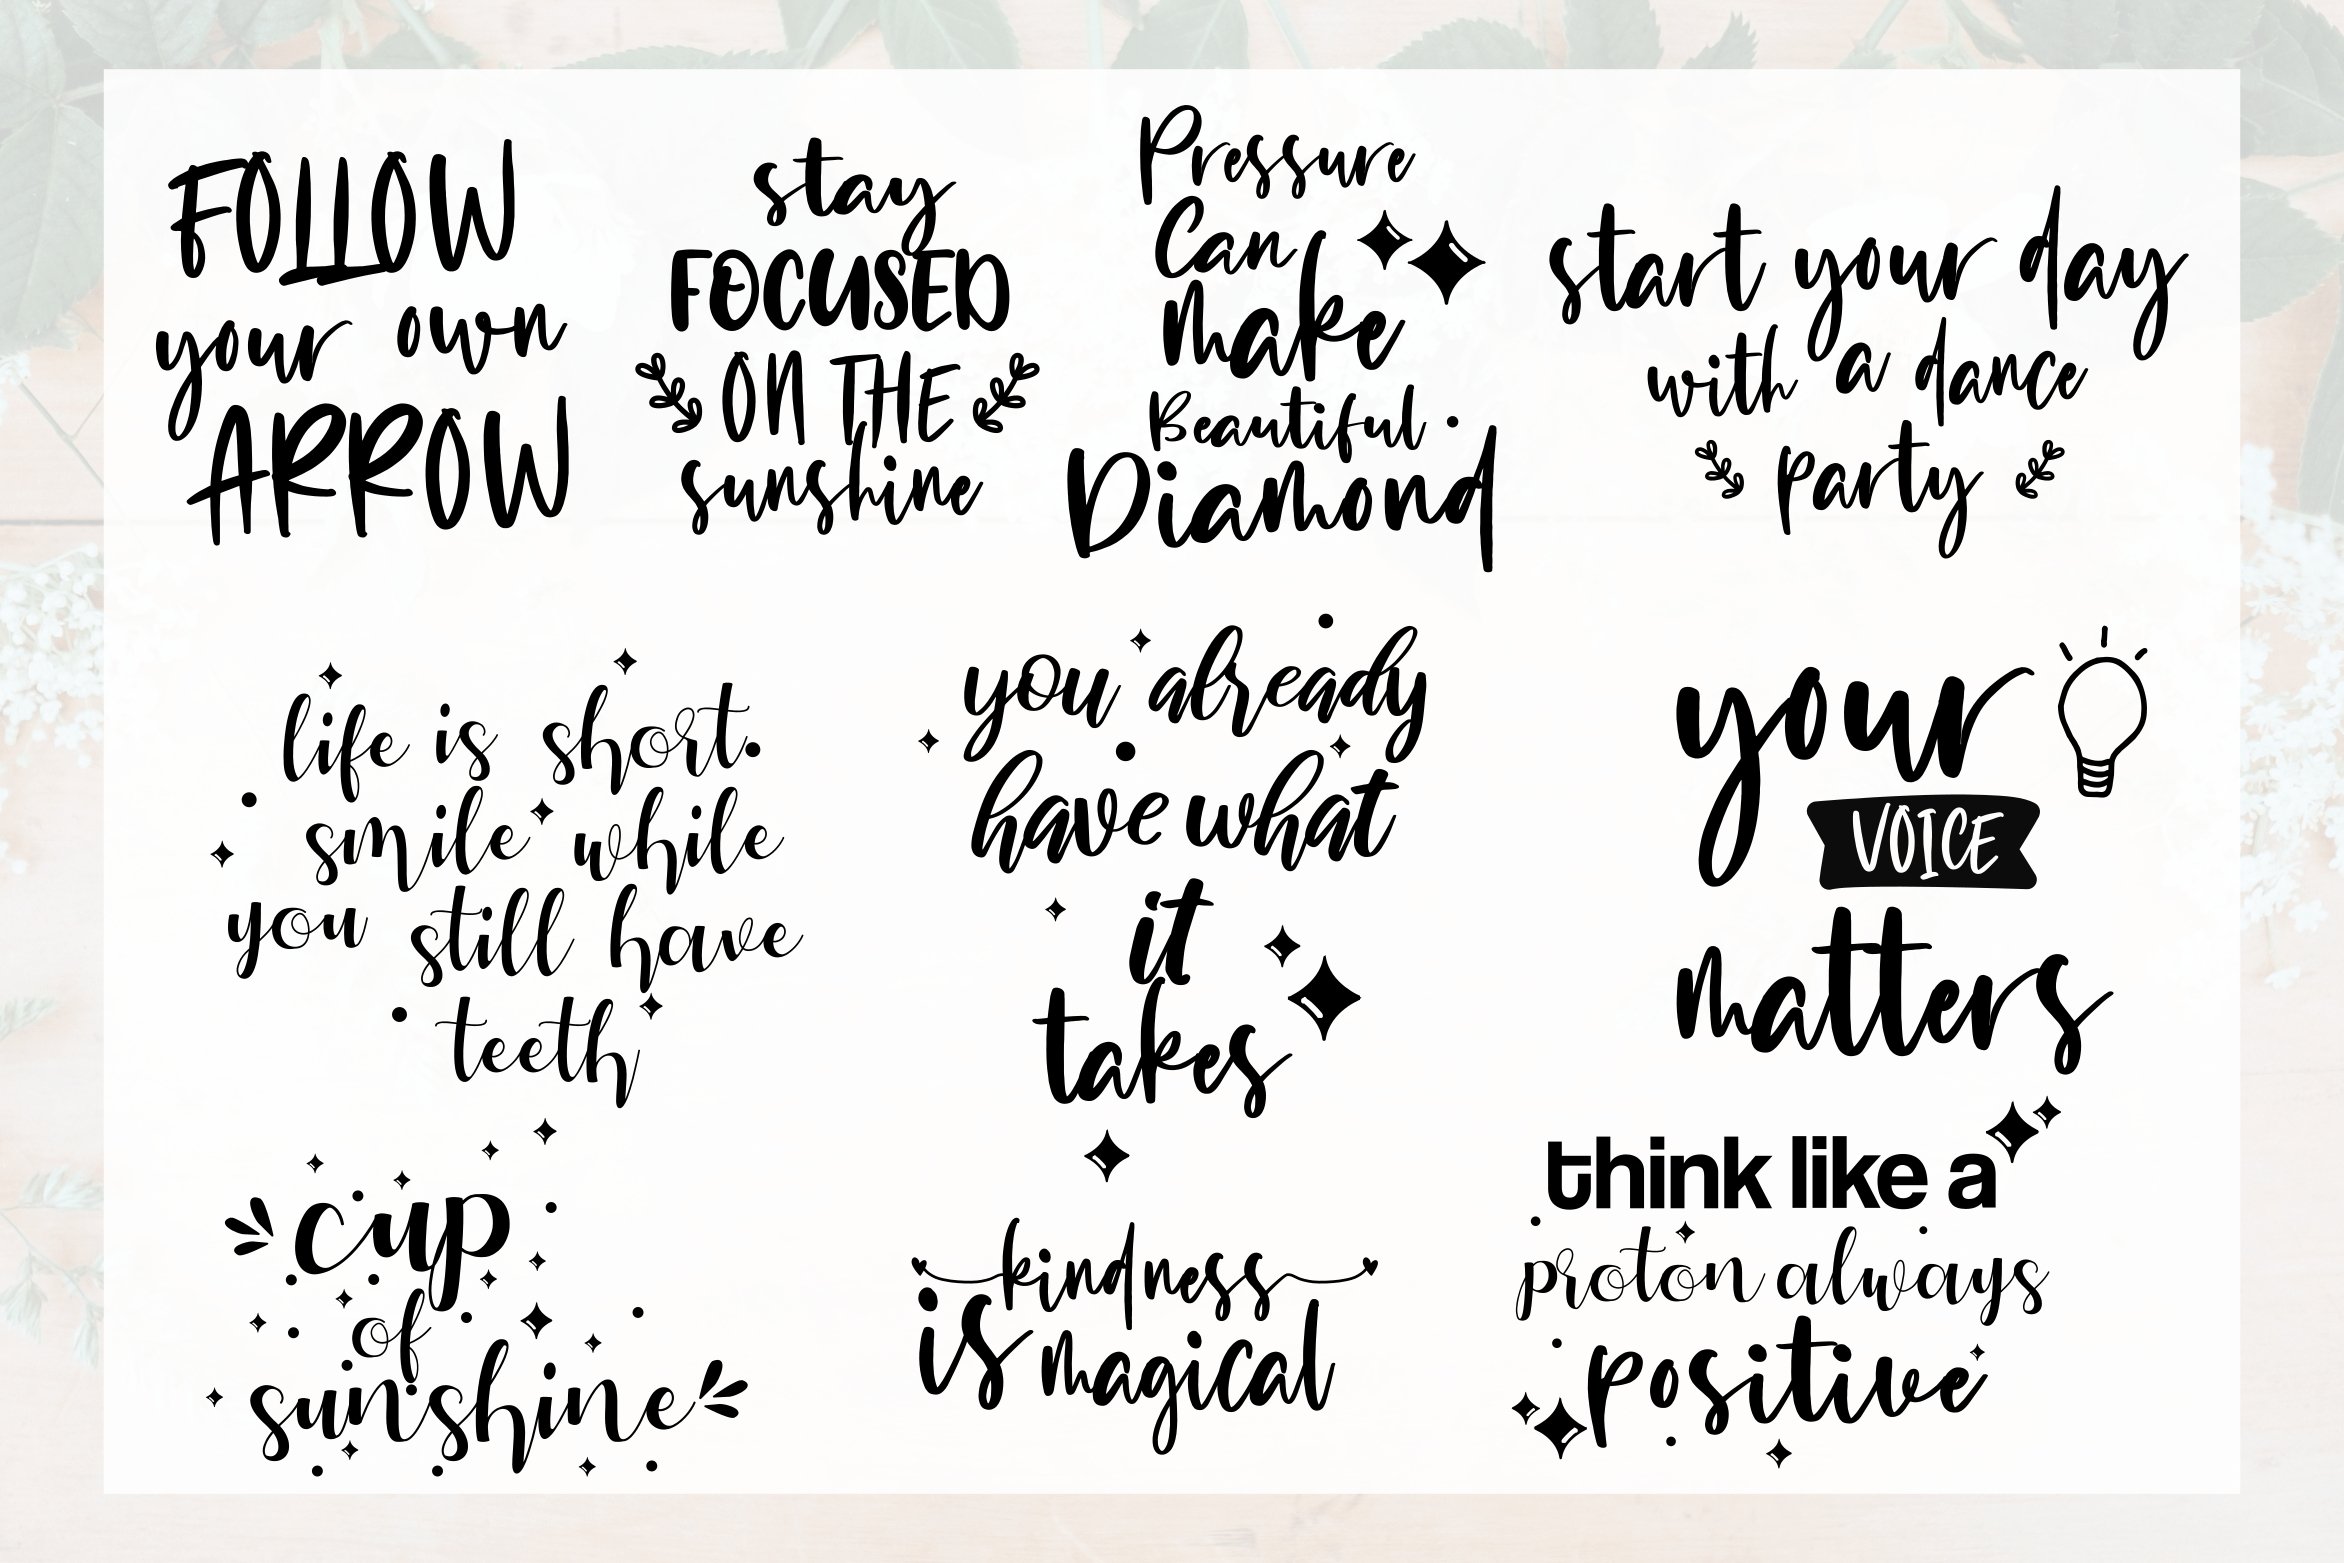 FOLLOW
your own
ARROW
stay
FOCUSED
ON THE
sunshine
Pressure
Can
Make
Beautiful
Diamond
start your day
with a dance
party
life is short.
smile while
you still have
teeth
you already
have what
it
takes
your
VOICE
matters
cup
of
sunshine
kindness
is magical
think like a
proton always
positive